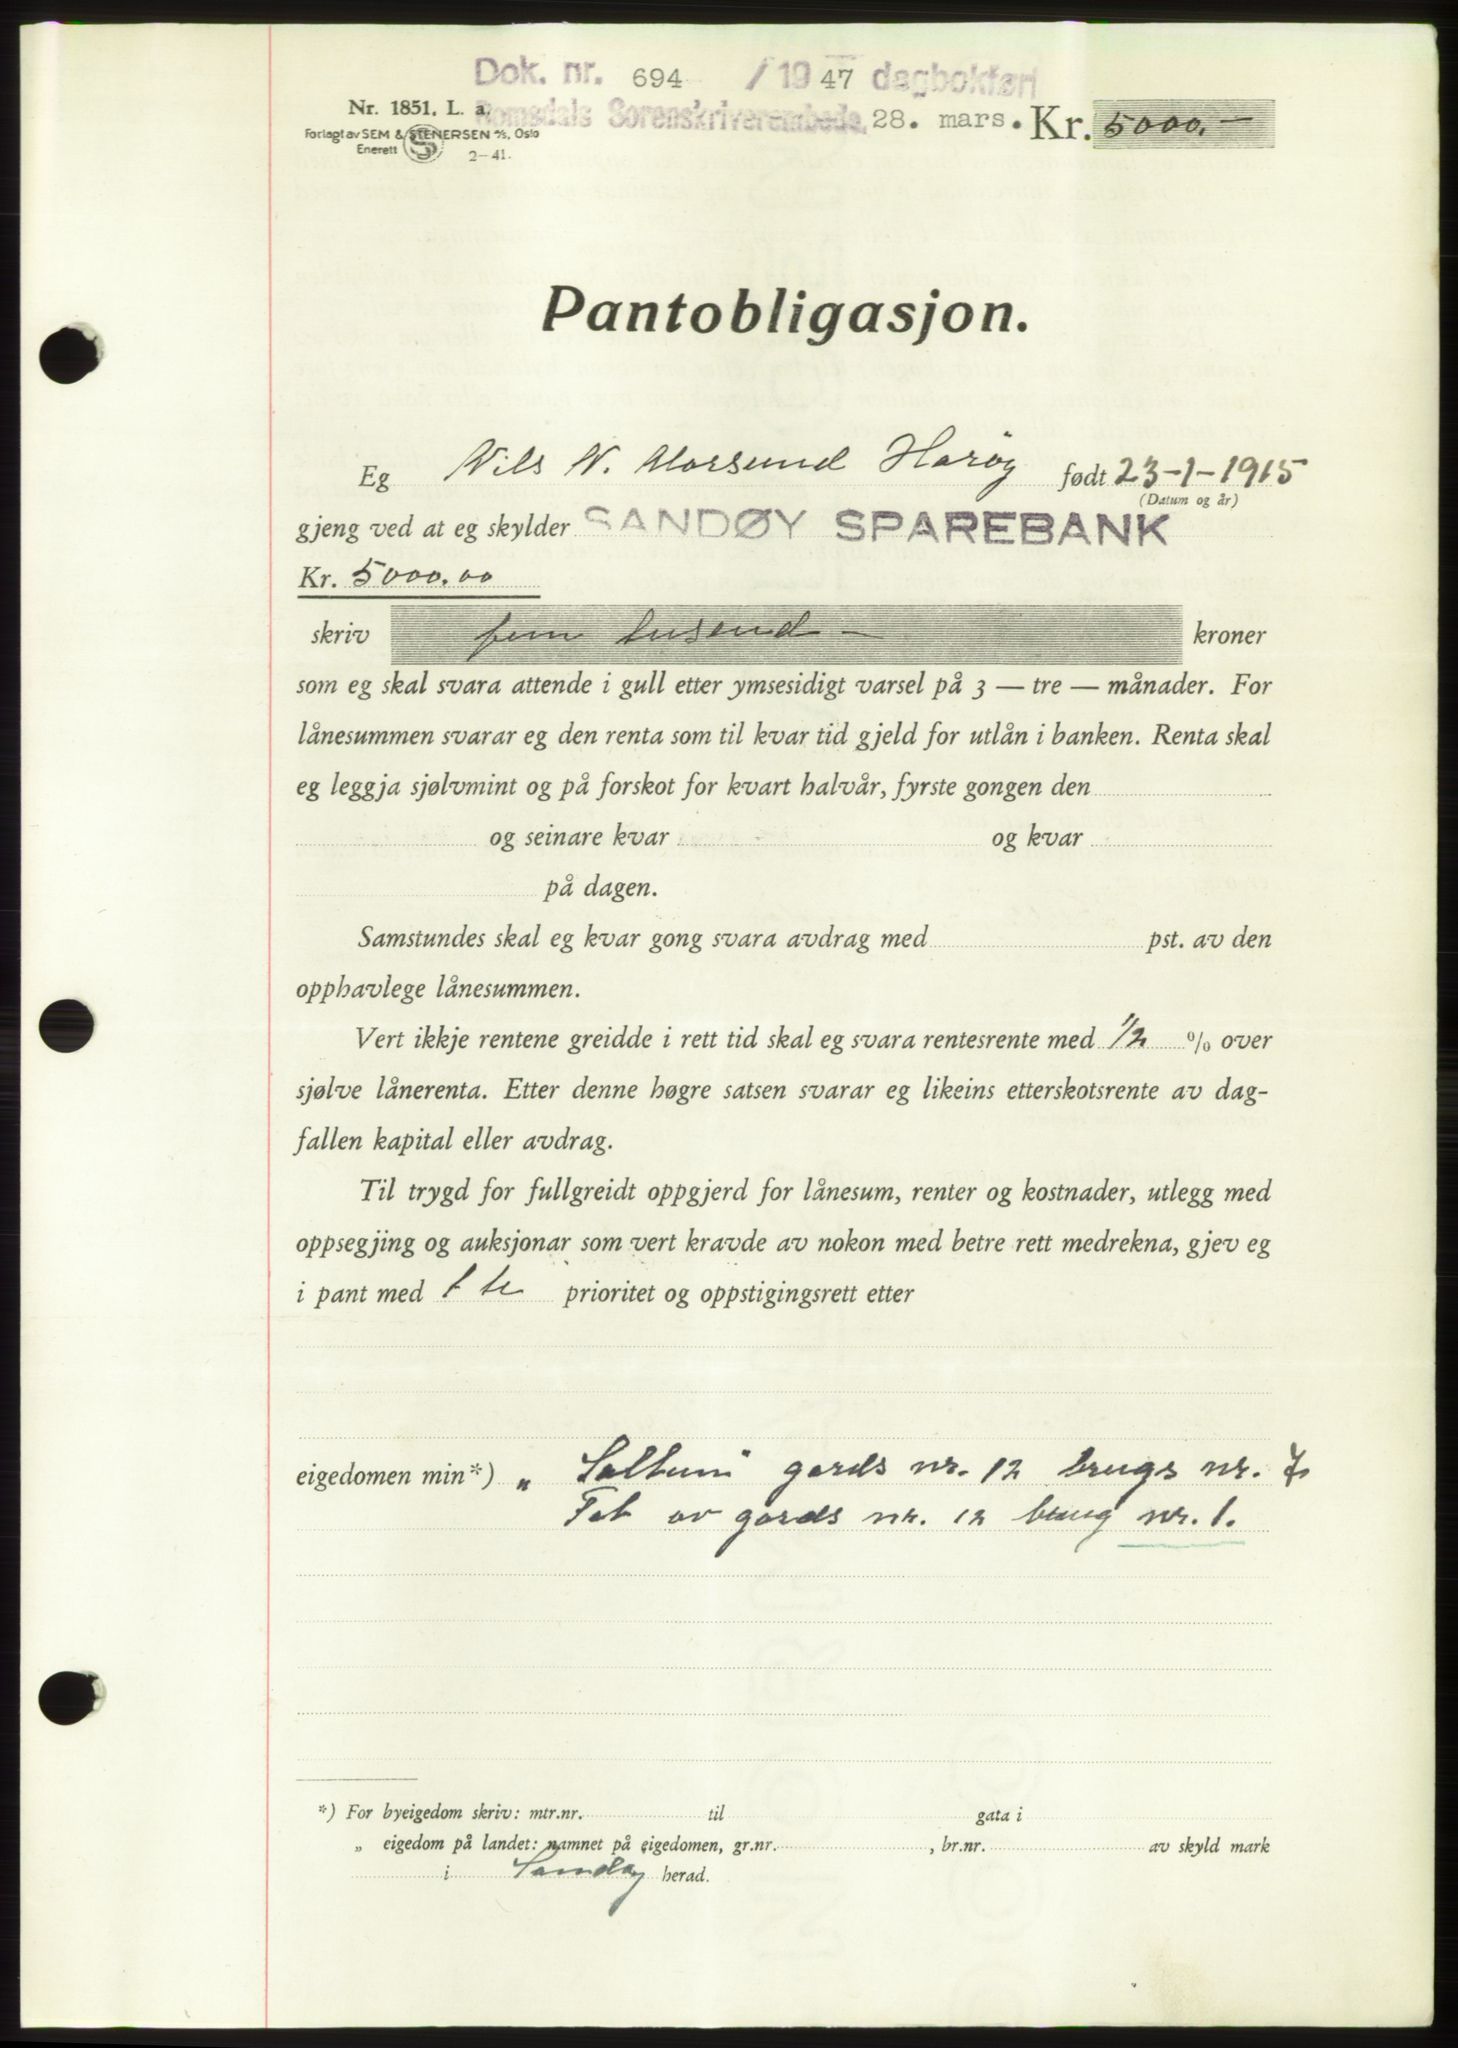 Dok. nr. 694 / 1947 dagbokført
Nr. 1851. L. a. Romsdals Sorenskriverembede, 28. mars. Kr. 5000.-
Forlagt av SEM & STENERSEN A/S, Oslo
Enerett S 2-41.
Pantobligasjon.
Eg Nils N. Harøy født 23-1-1915
(Datum og år)
gjeng ved at eg skylder SANDØY SPAREBANK
Kr. 5000.00
skriv fem tusend - kroner
som eg skal svara attende i gull etter ymsesidigt varsel på 3 — tre — månader. For
lånesummen svarar eg den renta som til kvar tid gjeld for utlån i banken. Renta skal
eg leggja sjølvmint og på forskot for kvart halvår, fyrste gongen den
og seinare kvar og kvar
på dagen.
Samstundes skal eg kvar gong svara avdrag med pst. av den
opphavlege lånesummen.
Vert ikkje rentene greidde i rett tid skal eg svara rentesrente med 1/2 % over
sjølve lånerenta. Etter denne høgre satsen svarar eg likeins etterskotsrente av dag-
fallen kapital eller avdrag.
Til trygd for fullgreidt oppgjerd for lånesum, renter og kostnader, utlegg med
oppsegjing og auksjonar som vert kravde av nokon med betre rett medrekna, gjev eg
i pant med 1 ste prioritet og oppstigingsrett etter
eigedomen min*) „ gards nr. 12 brugs nr. 7
av gards nr. 12 brug nr. 1.
*) For byeigedom skriv: mtr.nr. til gata i
„ eigedom på landet: namnet på eigedomen, gr.nr. , br.nr. av skyld mark
i Sandøy herad.